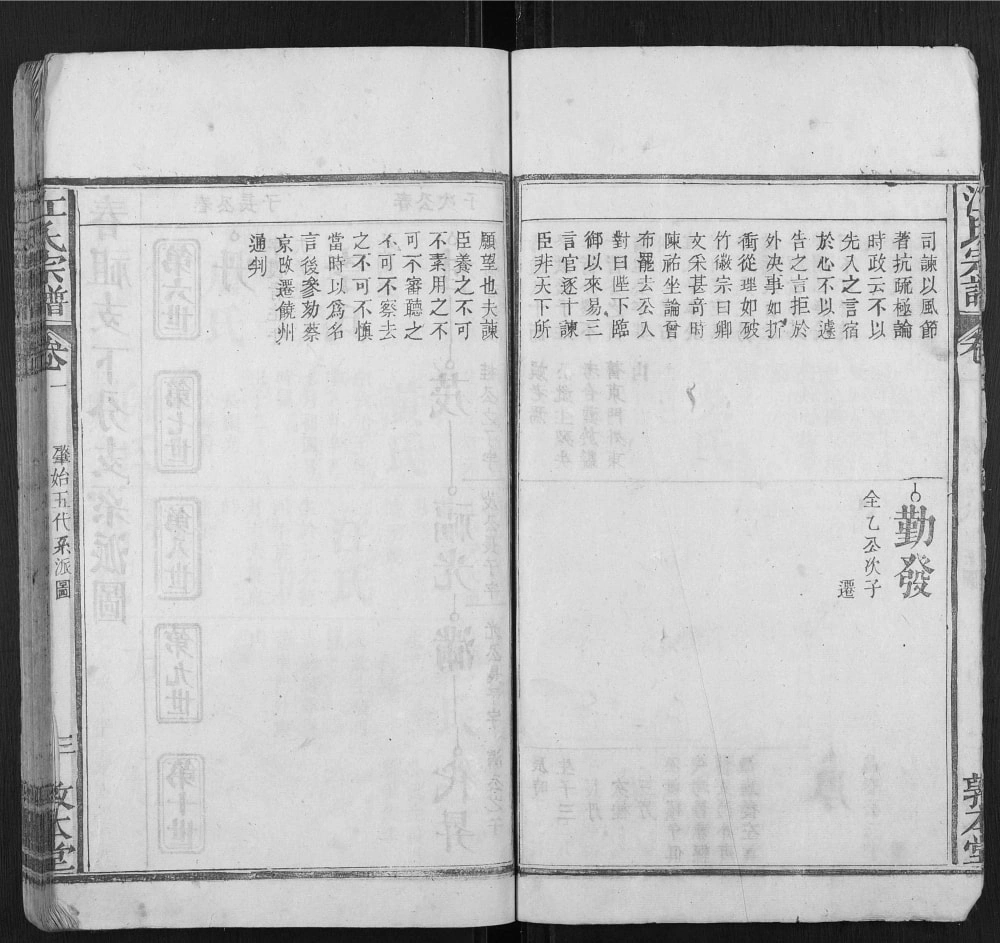 司諫以風節
著抗疏極論
時政云不以
先入之言宿
於心不以遽
告之言拒於
外決事如折
衝從理如破
竹徽宗曰卿
文采甚竒時
陳祐坐論曾
布罷去公入
對曰陛下臨
御以來易三
言官逐十諫
臣非天下所
勤發
仝乙公次子
遷
願望也夫諫
臣養之不可
不素用之不
可不審聽之
不可不察去
之不可不慎
當時以爲名
言後叅劾蔡
京改遷饒州
通判
江氏宗譜
卷一
肇始五代系派圖
三
敦本堂